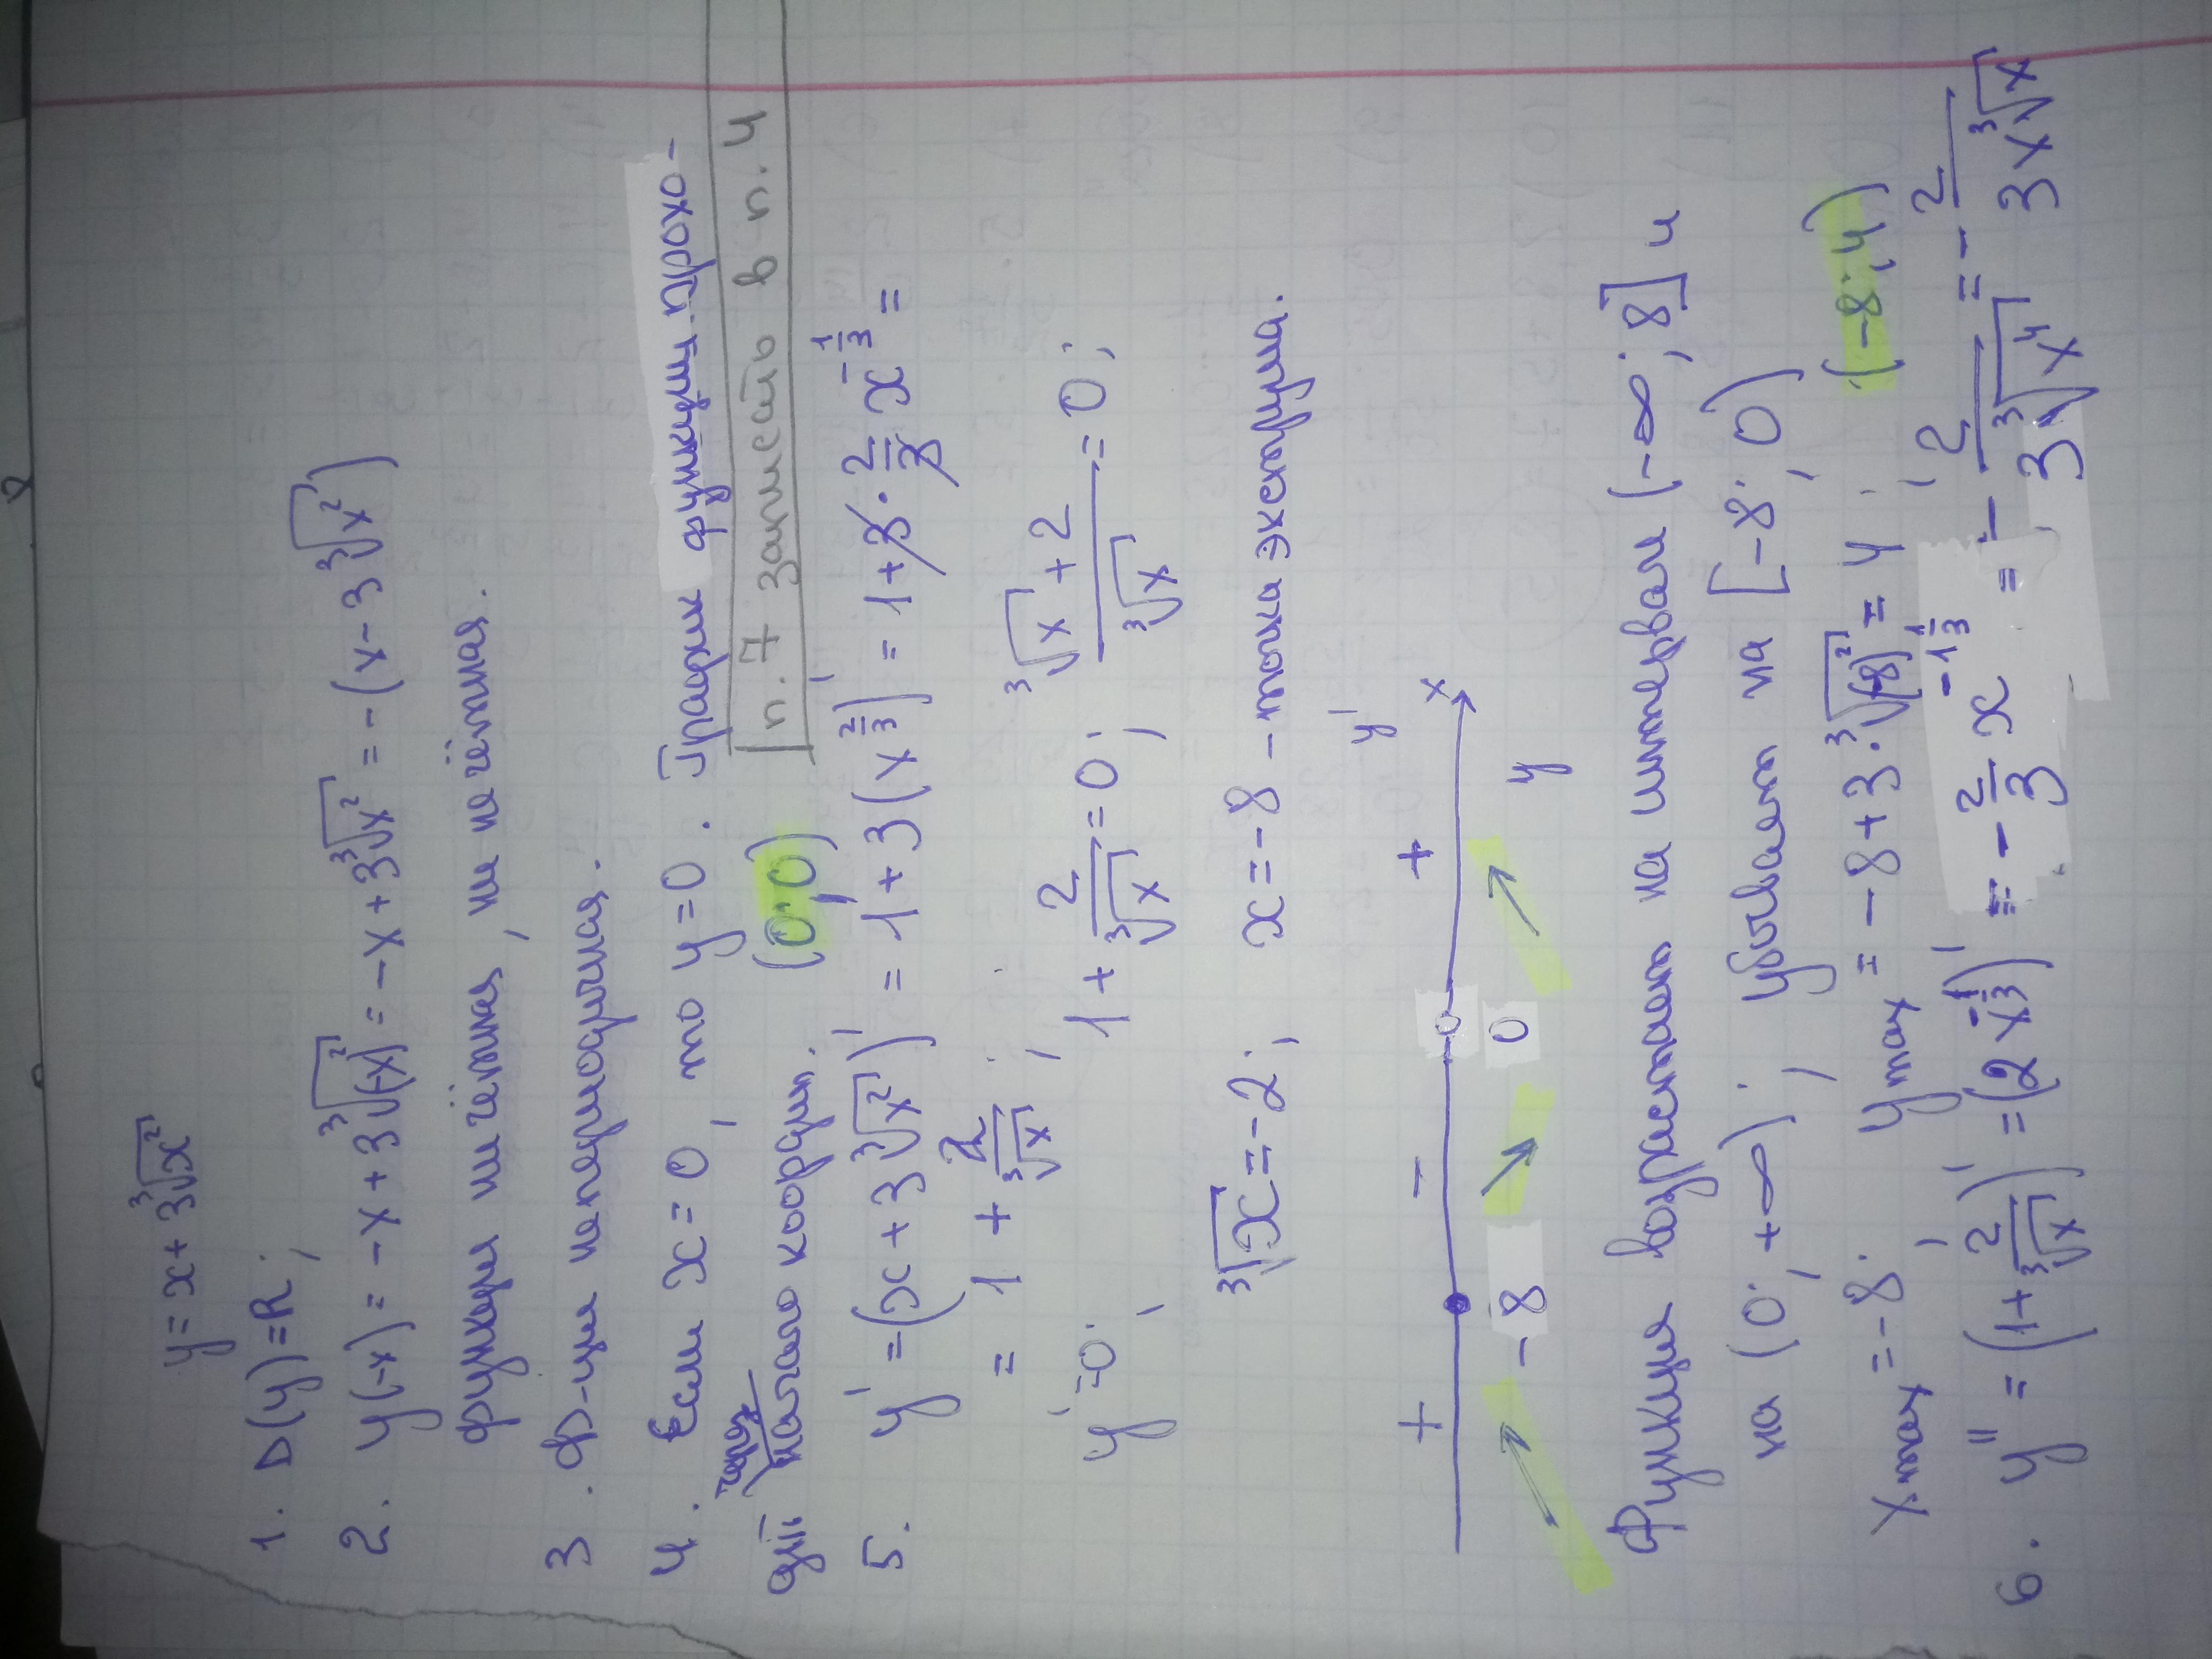 y = x + 3∛x²
1. D(y) = R;
2. y(-x) = -x + 3∛(-x)² = -x + 3∛x² = -(x - 3∛x²)
функция ни чётная, ни нечётная.
3. Ф-ция непериодичная.
4. Если x = 0, то y = 0. График функции прохо-
дит через начало координ. (0; 0)
п. 7 записать в п. 4
5. y' = (x + 3∛x²)' = 1 + 3(x^(2/3))' = 1 + 3 · 2/3 x^(-1/3) =
= 1 + 2/∛x;
y' = 0; 1 + 2/∛x = 0; (∛x + 2)/∛x = 0;
∛x = -2; x = -8 - точка экстремума.
+ - + x y'
-8 0 y
Функция возрастает на интервале (-∞; 8] и
на (0; +∞); убывает на [-8; 0)
x max = -8; y max = -8 + 3·∛(-8)² = 4; (-8; 4)
6. y'' = (1 + 2/∛x)' = (2x^(-1/3))' = -2/3 x^(-1 1/3) = - 2/(3∛x⁴) = - 2/(3x∛x)